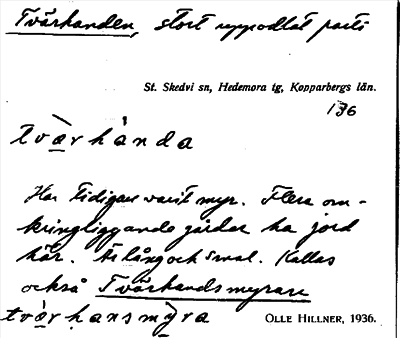 Tvärhanden, stort uppodlat parti
St. Skedvi sn, Hedemora tg, Kopparbergs län.
136
tvàrhánda
Har tidigare varit myr. Flera om-
kringliggande gårdar ha jord
här. Är lång och smal. Kallas
också Tvärhandsmyran
tvàrhansmỳra
OLLE HILLNER, 1936.